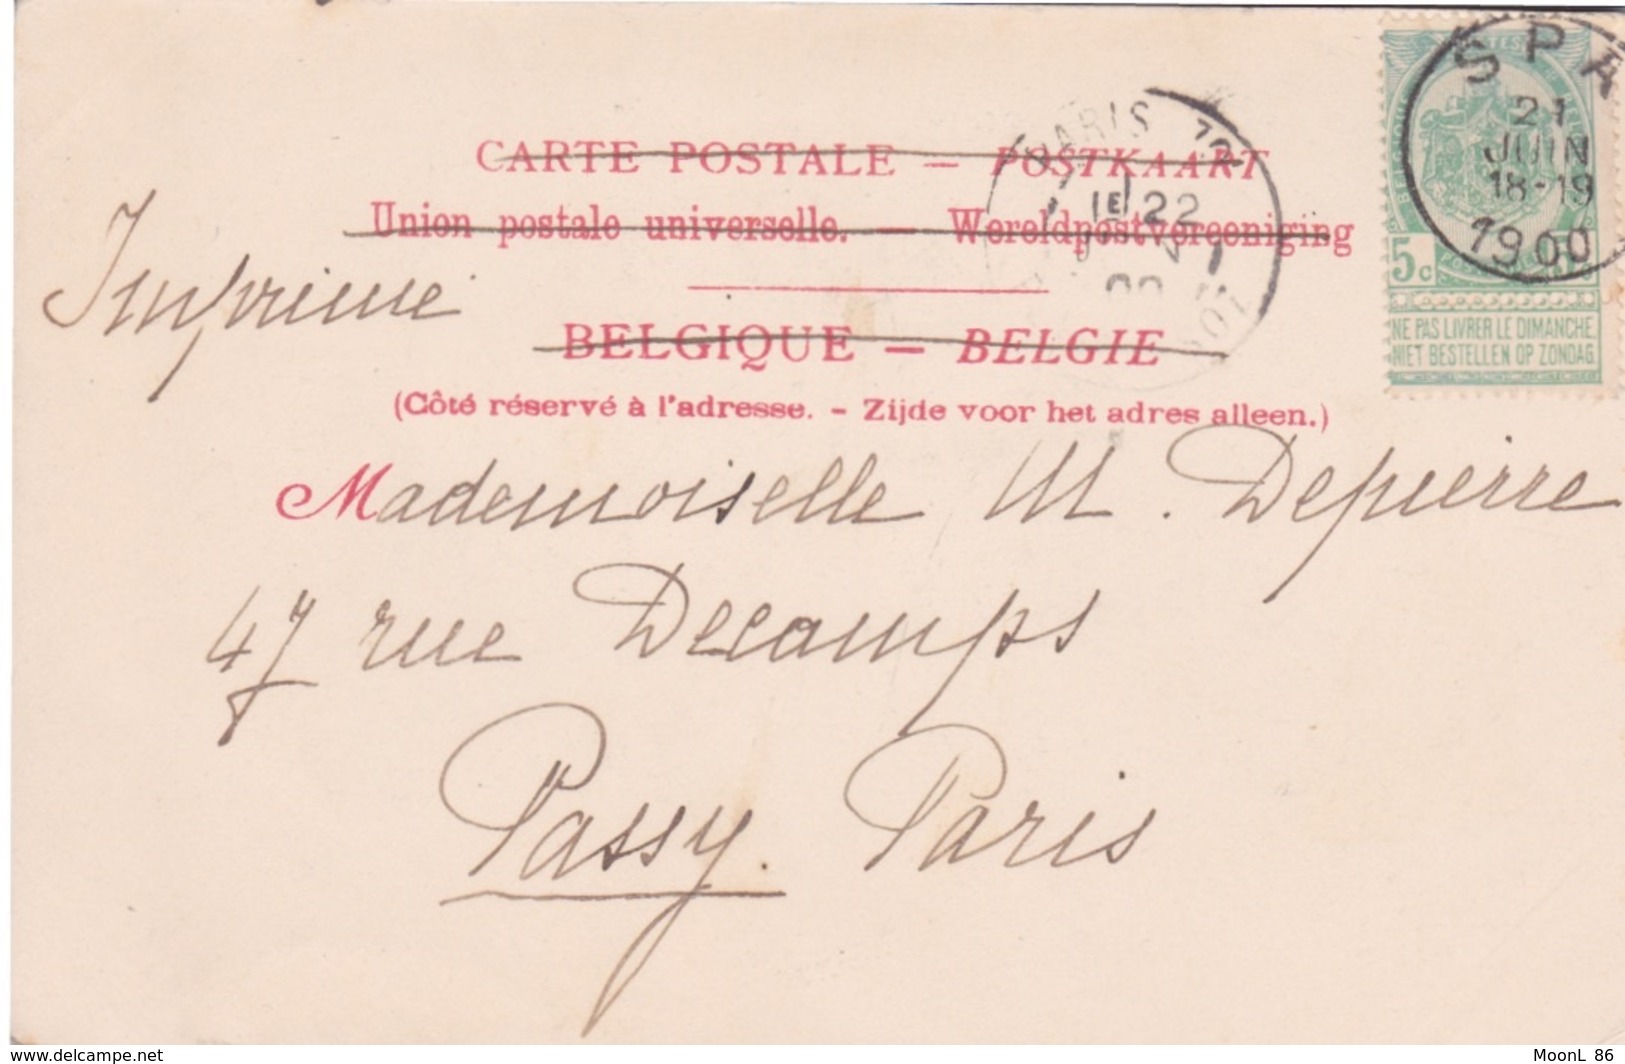 CARTE POSTALE — POSTKAART
Union postale universelle. — Wereldpostvereeniging
Imprimé
BELGIQUE — BELGIE
(Côté réservé à l'adresse. - Zijde voor het adres alleen.)
PARIS 12
1E 22
SPA
21
JUIN
18-19
1900
5c
NE PAS LIVRER LE DIMANCHE
NIET BESTELLEN OP ZONDAG
Mademoiselle M. Depierre
47 rue Decamps
Passy. Paris
www.delcampe.net
MoonL 86